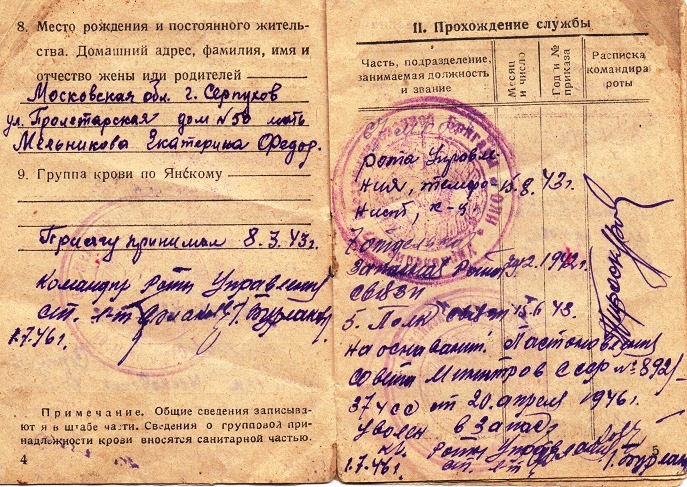 8. Место рождения и постоянного житель-
ства. Домашний адрес, фамилия, имя и
отчество жены или родителей
Московская обл. г. Серпухов
ул. Пролетарская дом № 50 мать
Мельникова Екатерина Федор.
9. Группа крови по Янскому
Присягу принимал 8.3.43г.
Командир Роты Управления
ст. л-т
1.7.46г.
Примечание. Общие сведения записыва-
ют я в штабе части. Сведения о групповой при-
надлежности крови вносятся санитарной частью.
4
II. Прохождение службы
Часть, подразделение,
занимаемая должность
и звание
Месяц
и число
Год и №
приказа
Расписка
командира
роты
рота Управле-
ния, телефо- 15.8. 43г.
нист, к-ц.
7 отдельная
Запасная Рота 1942г.
связи
5. Полк связи 15.6 43.
На основании Постоновления
Совета Министров СССР № 892/-
374сс от 20 апреля 1946г.
уволен в запас
Роты Управления
1.7.46г. ст. л-т
5